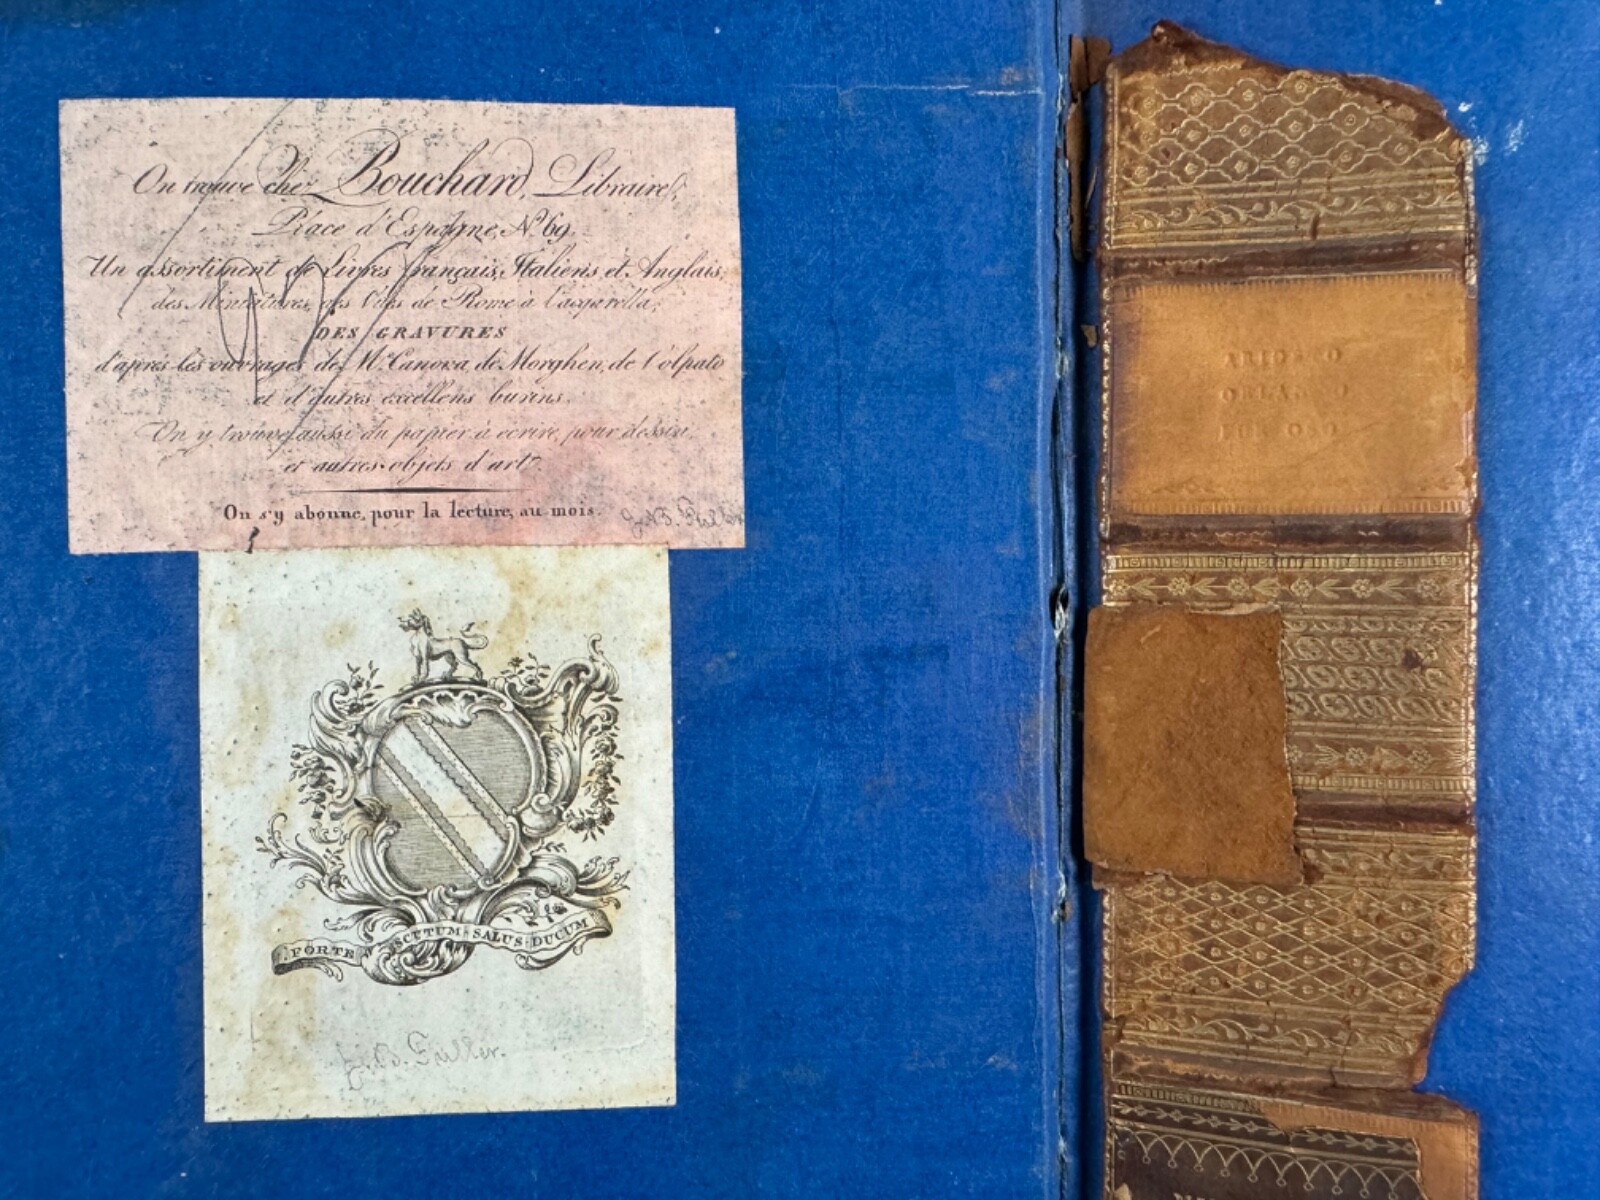 On trouve chez Bouchard, Libraire,
Place d'Espagne, Nº 69.
Un assortiment de Livres français, Italiens et Anglais,
des Miniatures, des Vües de Rome à l'acqarella,
DES GRAVURES
d'après les ouvrages de Mr Canova, de Morghen, de Volpato
et d'autres excellens burins.
On y trouve aussi du papier à écrire, pour dessin,
et autres objets d'art.
On s'y abonne, pour la lecture, au mois.
J.B. Fuller
FORTE SCUTUM SALUS DUCUM
J.B. Fuller.
ARIOSTO
ORLANDO
FURIOSO